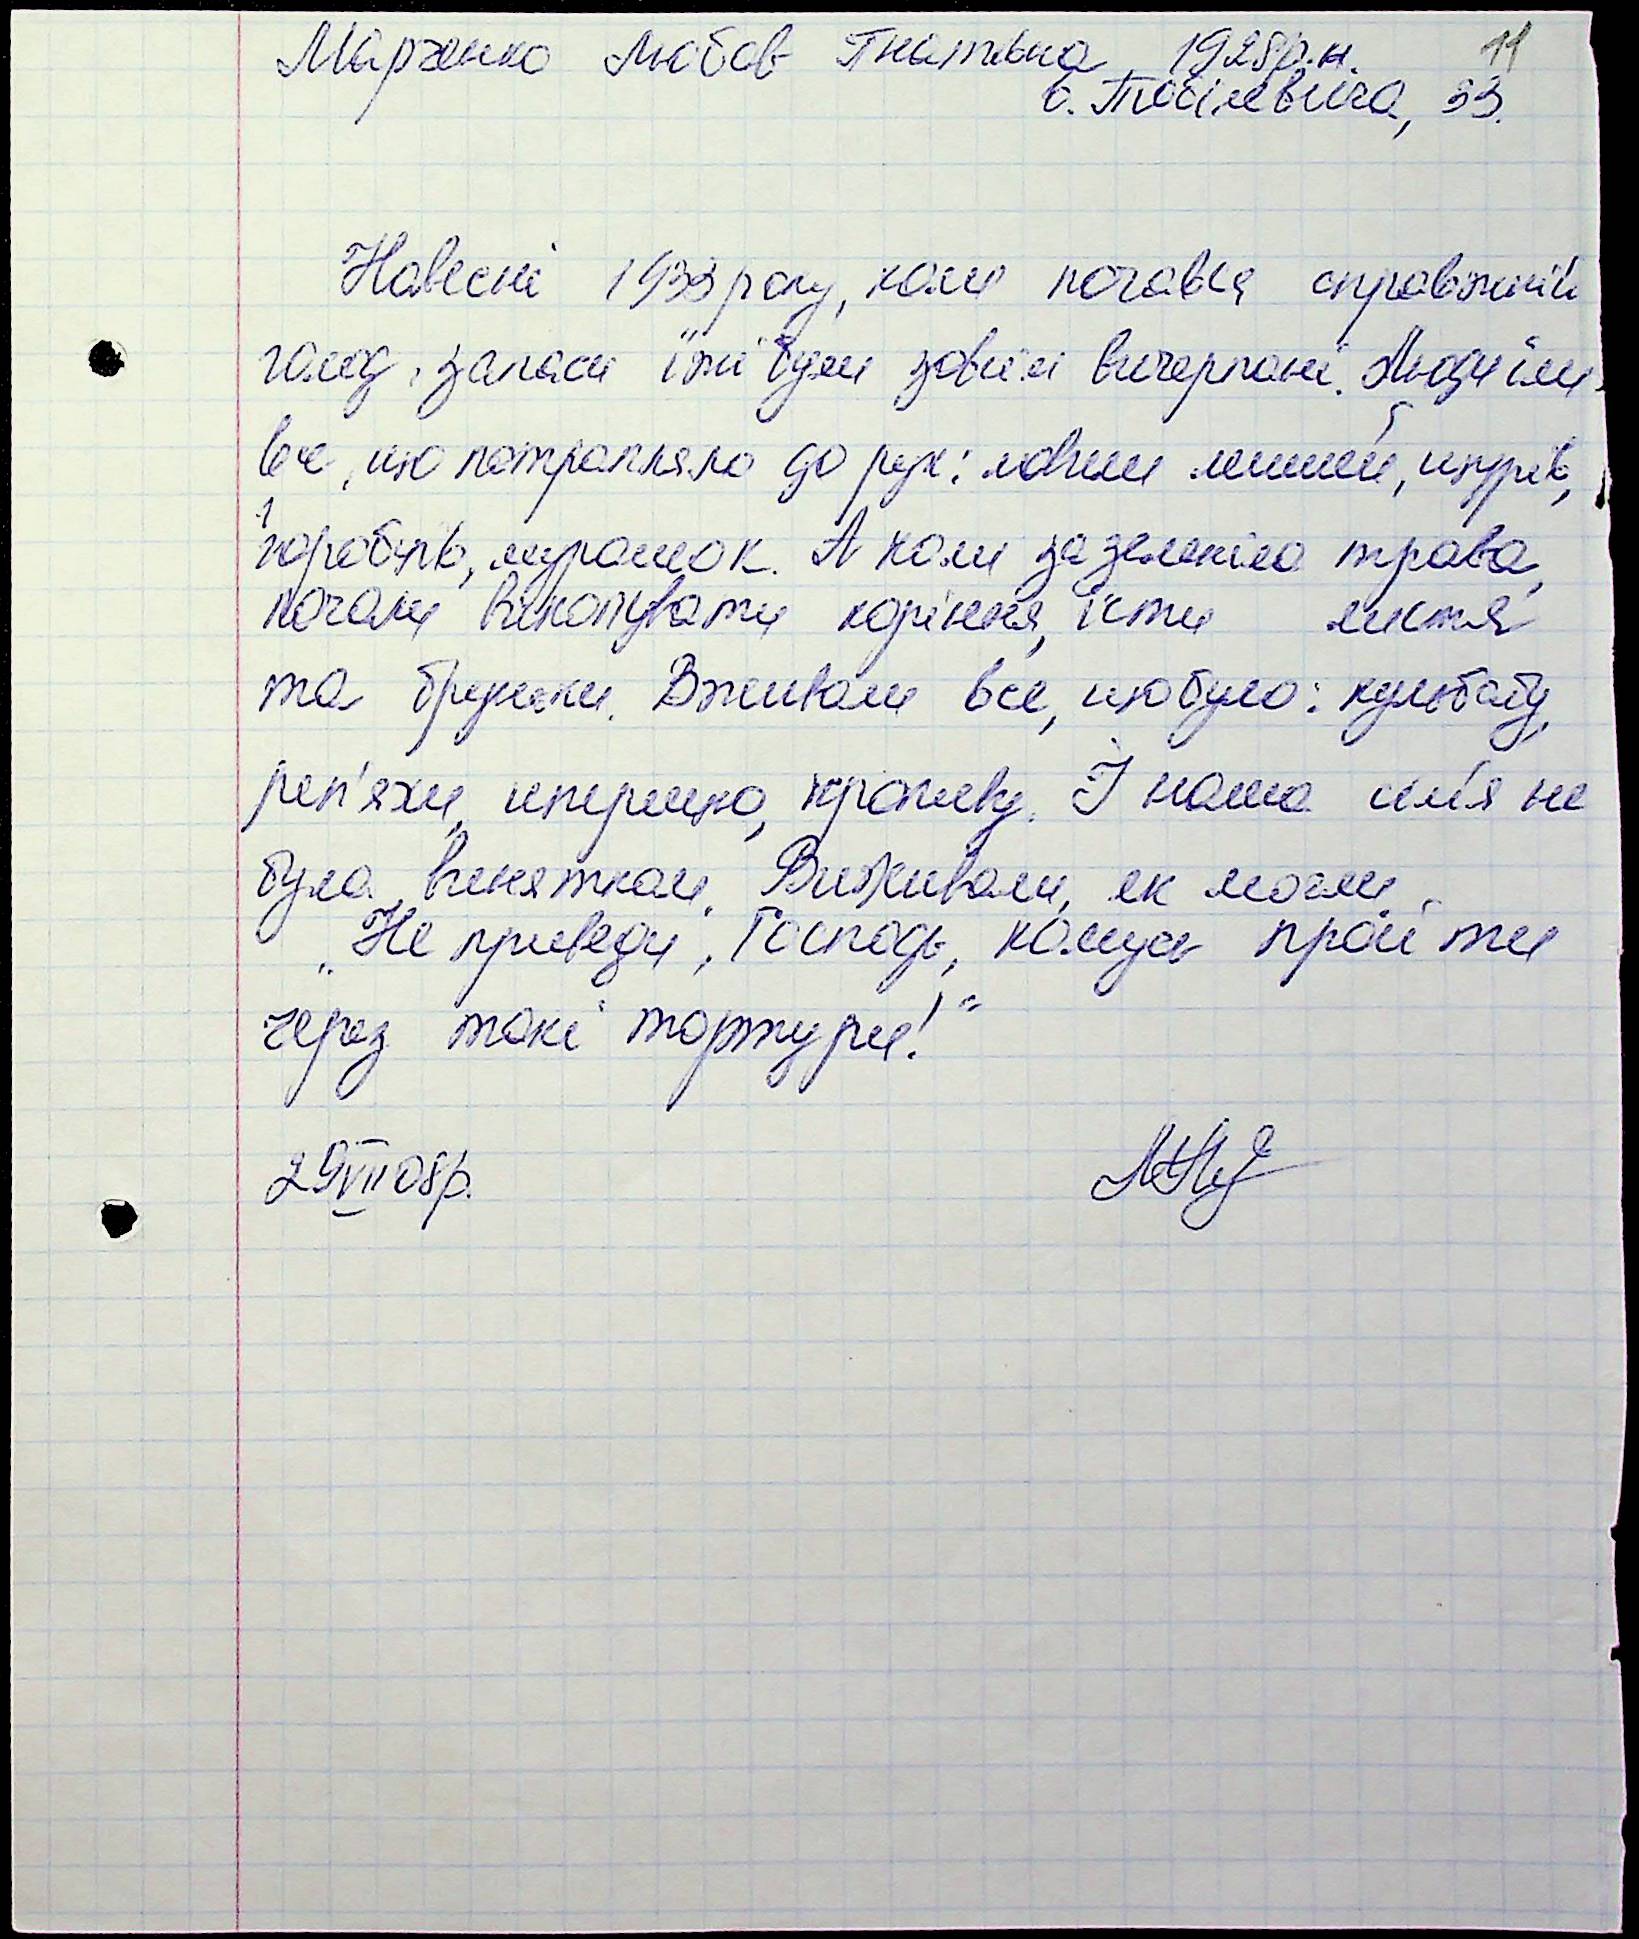 Марченко Любов Гнатівна 1928р.н. 11
б. Тобілевича, 33.
Навесні 1933 року, коли почався справжній
голод, запаси їжі були зовсім вичерпані. Люди їли
все, що потрапляло до рук: ловили мишей, щурів,
горобців, мурашок. А коли зазеленіла трава,
почали викопувати коріння, їсти листя
та бруньки. Вживали все, що було: кульбабу,
реп'яхи, щирицю, кропиву. І наша сім'я не
була винятком. Виживали, як могли.
„Не приведи, Господь, комусь пройти
через такі тортури!"
29 VII 08р.